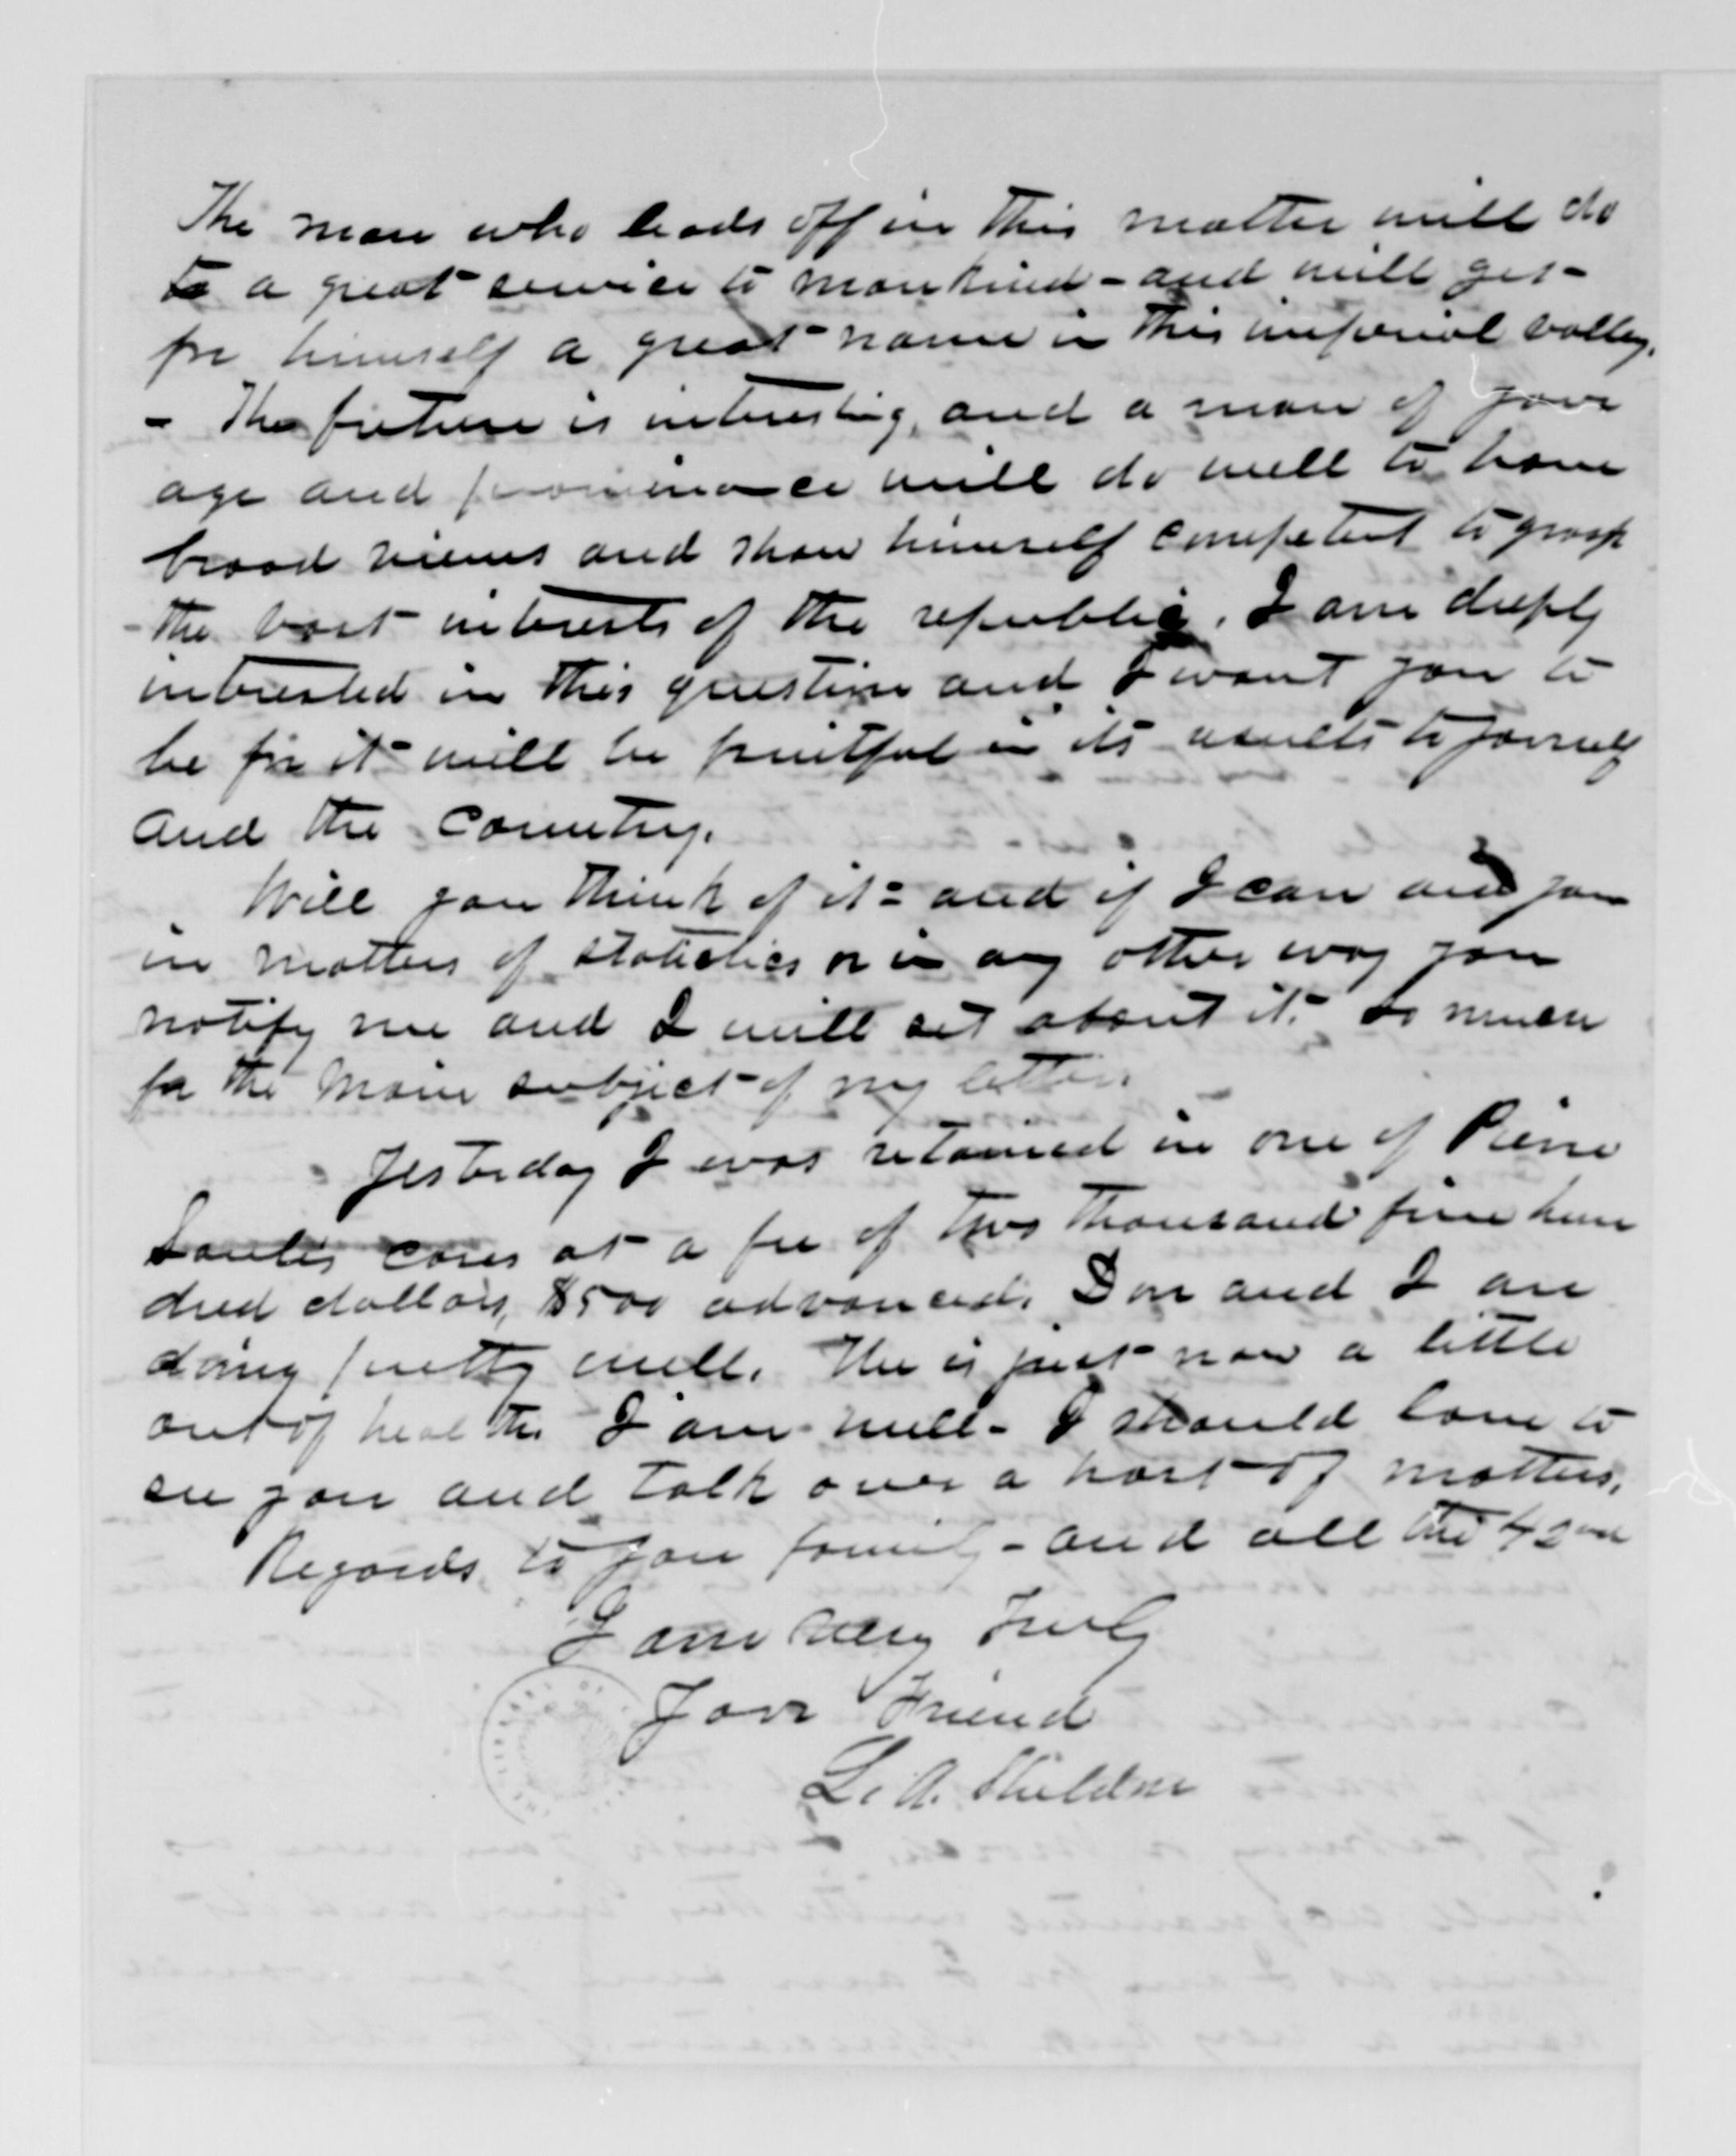 The man who leads off in this matter will do
to a great service to mankind - and will get
for himself a great name in this imperial valley.
- The future is interesting, and a man of your
age and prominence will do well to have
broad views and show himself competent to grasp
the vast interests of the republic. I am deeply
interested in this question and I want you to
be for it will be fruitful in its results to yourself
and the Country.
Will you think of it - and if I can aid you
in matters of statistics or in any other way you
notify me and I will set about it. So much
for the main subject of my letter.
Yesterday I was retained in one of Pierre
Soules cases at a fee of two thousand five hun
dred dollars, $500 advanced. Don and I are
doing pretty well. He is just now a little
out of health I am well - I should love to
see you and talk over a host of matters.
Regards to your family - and all the 42nd
I am very truly
Your Friend
L. A. Sheldon